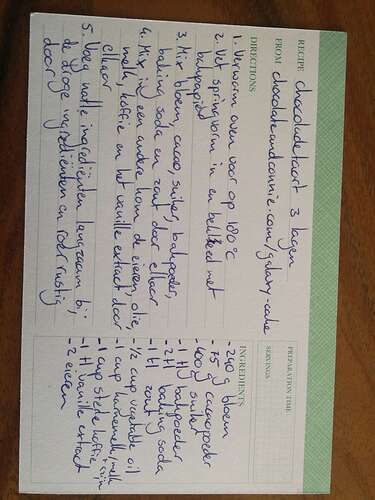 RECIPE chocoladetaart 3 lagen
FROM chocolateandconnie.com/galaxy-cake
DIRECTIONS
1. Verwarm oven voor op 180°C
2. Vet springvorm in en bekleed met
bakpapier
3. Mix bloem, cacao, suiker, bakpoeder,
baking soda en zout door elkaar
4. Mix in een andere kom de eieren, olie,
melk, koffie en het vanille extract door
elkaar
5. Voeg natte ingrediënten langzaam bij
de droge ingrediënten en roer rustig
door
PREPARATION TIME
SERVINGS
INGREDIENTS
- 240 g bloem
- 75 g cacaopoeder
- 400g suiker
- 1 tl bakpoeder
- 2tl baking soda
- 1tl zout
- 1/2 cup vegetable oil
- 1 cup karnemelk/melk
- 1 cup sterke koffie
- 1 tl vanille extract
- 2 eieren